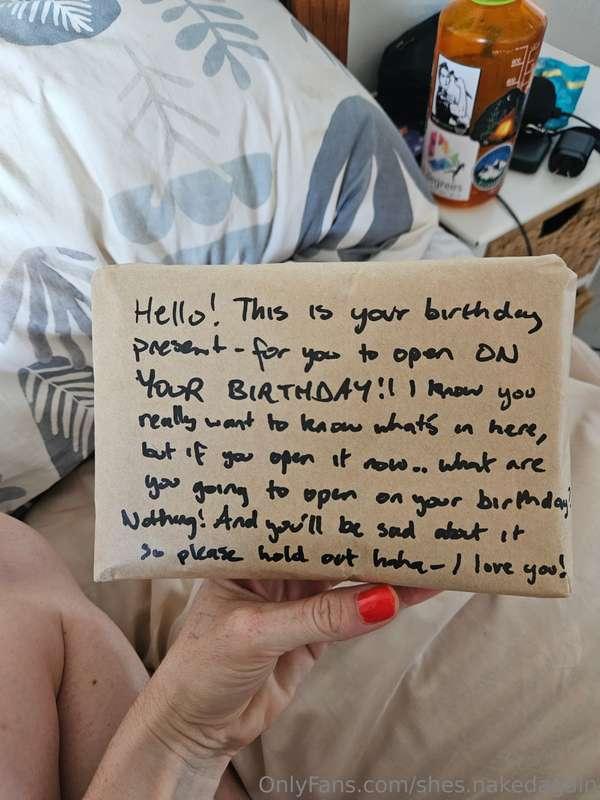 Hello! This is your birthday
present - for you to open ON
YOUR BIRTHDAY!! I know you
really want to know what's in here,
but if you open it now.. what are
you going to open on your birthday?
Nothing! And you'll be sad about it
so please hold out haha - I love you!
OnlyFans.com/shes.nakedagain